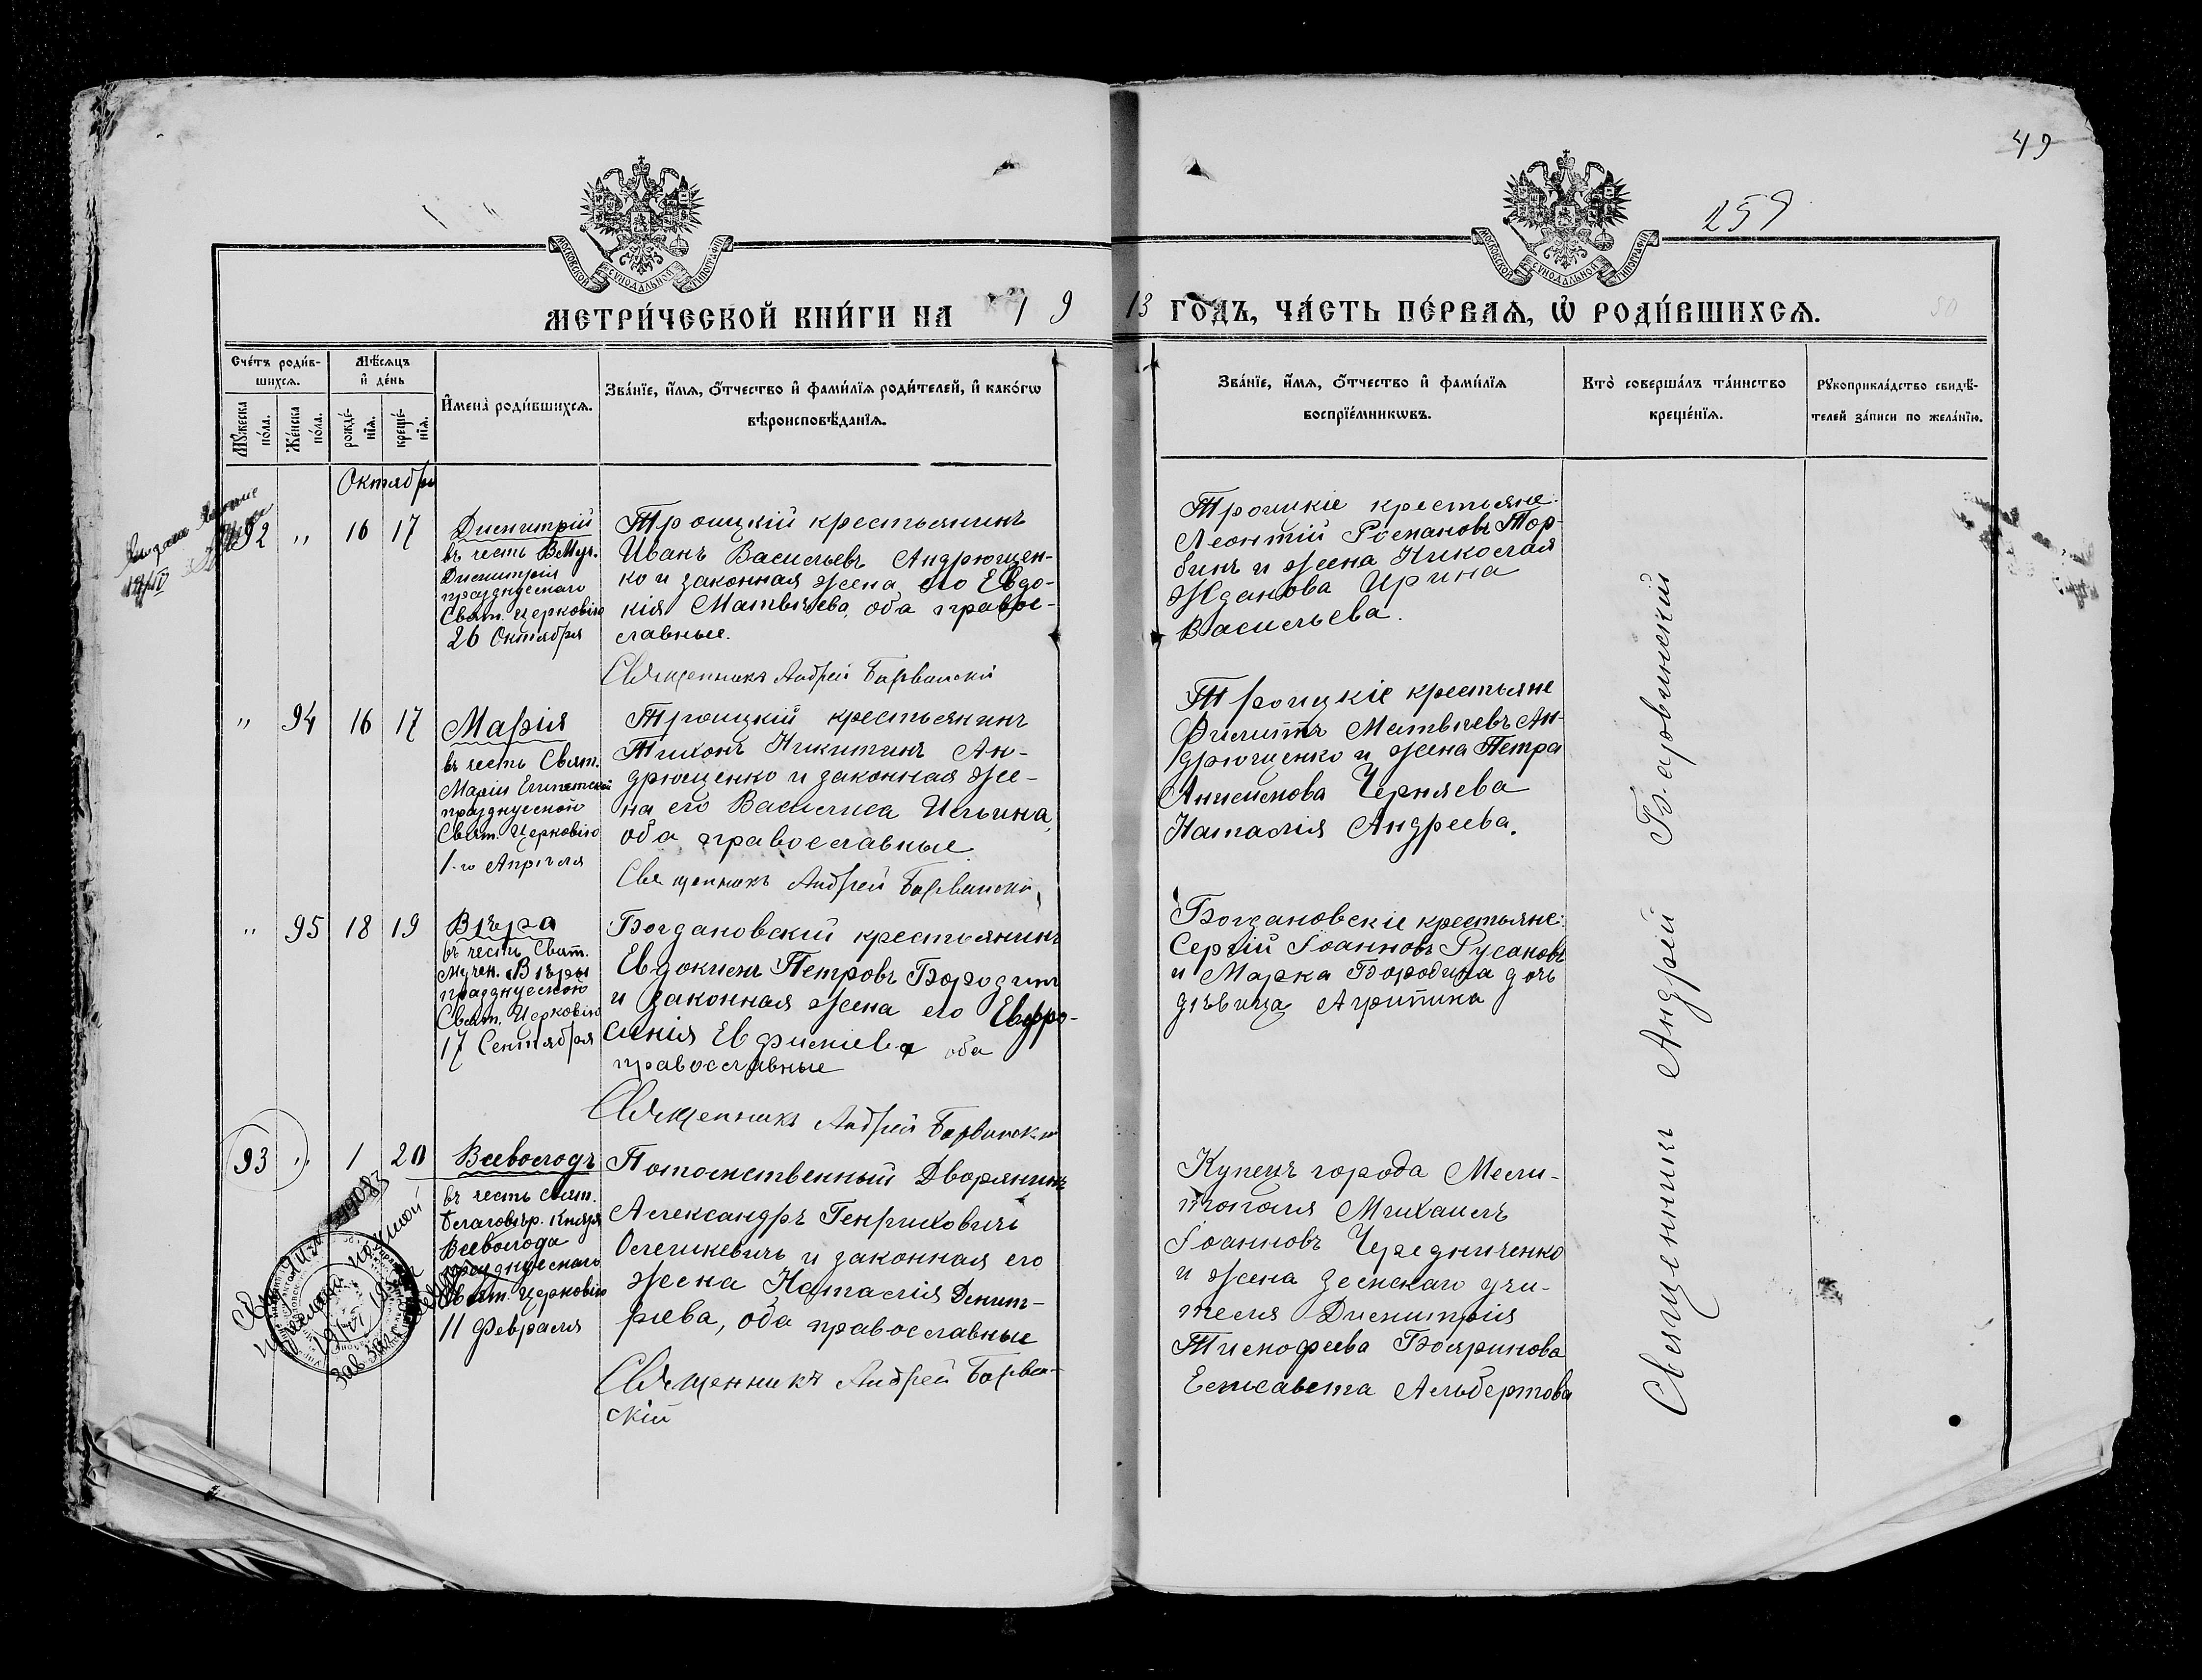 49
259
МОСКОВСКОЙ СѴНОДАЛЬНОЙ ТИПОГРАФІИ
МОСКОВСКОЙ СѴНОДАЛЬНОЙ ТИПОГРАФІИ
МЕТРИ́ЧЕСКОЙ КНИ́ГИ НА 19
13 ГОДЪ, ЧА́СТЬ ПЕ́РВАѦ, Ѡ҆ РОДИ́ВШИХСѦ.
Сче́тъ роди́в-
шихсѧ.
Мꙋ́жеска по́ла.
Же́нска по́ла.
Мѣ́сѧцъ
и҆ де́нь
рожде́-
нїѧ.
креще́-
нїѧ.
И҆мена̀ роди́вшихсѧ.
Зва́нїе, и҆́мѧ, ѻ҆́тчество и҆ фами́лїѧ роди́телей, и҆ како́гѡ
вѣроисповѣ́данїѧ.
Зва́нїе, и҆́мѧ, ѻ҆́тчество и҆ фами́лїѧ
воспрїе́мникѡвъ.
Кто̀ соверша́лъ та́инство
креще́нїѧ.
Рꙋкоприкла́дство свидѣ́-
телей за́писи по жела́нїю.
Октябрь
92 " 16 17
Димитрій
въ честь ВеМуч.
Димитрія
празднуемаго
Свят. Церковію
26 Октября
Троицкій крестьянинъ
Иванъ Васильевъ Андрющен-
ко и законная жена его Евдо-
кія Матвѣева, оба право-
славные.
Священникъ Андрей Барвинскій
Троицкіе крестьяне:
Леонтій Романовъ Тор-
бинъ и жена Николая
Жданова Ирина
Васильева.
" 94 16 17
Марія
въ честь Свят.
Маріи Египетской
празднуемой
Свят. Церковію
1-го Апрѣля
Троицкій крестьянинъ
Тихонъ Никитинъ Ан-
дрющенко и законная же-
на его Василиса Ильина,
оба православные.
Священникъ Андрей Барвинскій
Троицкіе крестьяне
Филиппъ Матвѣевъ Ан-
дрющенко и жена Петра
Анисимова Черняева
Наталія Андреева.
" 95 18 19
Вѣра
въ честь Свят.
Мучен. Вѣры
празднуемой
Свят. Церковію
17 Сентября
Богдановскій крестьянинъ
Евдокимъ Петровъ Бородинъ
и законная жена его Евфро-
синія Евфиміева оба
православные
Священникъ Андрей Барвинскій
Богдановскіе крестьяне:
Сергій Іоанновъ Русановъ
и Марка Бородина дочь
дѣвица Агрипина
93 " 1 20
Всеволодъ
въ честь Свят.
благовѣр. Князя
Всеволода
празднуемаго
Свят. Церковію
11 Февраля
Потомственный Дворянинъ
Александръ Генриховичъ
Олешкевичъ и законная его
жена Наталія Димит-
ріева, оба православные
Священникъ Андрей Барвин-
скій
Купецъ города Мели-
тополя Михаилъ
Іоанновъ Чередниченко
и жена земскаго учи-
теля Димитрія
Тимофеева Бояринова
Елисавета Альбертова
Священникъ Андрей Барвинскій